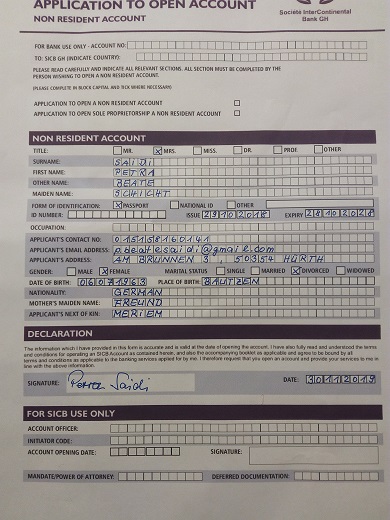 APPLICATION TO OPEN ACCOUNT
NON RESIDENT ACCOUNT
Société InterContinental
Bank GH
FOR BANK USE ONLY - ACCOUNT NO:
TO: SICB GH (INDICATE COUNTRY):
PLEASE READ CAREFULLY AND INDICATE ALL RELEVANT SECTIONS. ALL SECTION MUST BE COMPLETED BY THE
PERSON WISHING TO OPEN A NON RESIDENT ACCOUNT.
(PLEASE COMPLETE IN BLOCK CAPITAL AND TICK WHERE NECESSARY)
APPLICATION TO OPEN A NON RESIDENT ACCOUNT
APPLICATION TO OPEN SOLE PROPRIETORSHIP A NON RESIDENT ACCOUNT
NON RESIDENT ACCOUNT
TITLE: MR. X MRS. MISS. DR. PROF. OTHER
SURNAME: SAIDI
FIRST NAME: PETRA
OTHER NAME: BEATE
MAIDEN NAME: SCHICHT
FORM OF IDENTIFICATION: X PASSPORT NATIONAL ID OTHER
ID NUMBER: ISSUE 29102018 EXPIRY 28102028
OCCUPATION:
APPLICANT'S CONTACT NO: 015158160141
APPLICANT'S EMAIL ADDRESS: p.beatesaidi@gmail.com
APPLICANT'S ADDRESS: AM BRUNNEN 3, 50354 HÜRTH
GENDER: MALE X FEMALE MARITAL STATUS SINGLE MARRIED X DIVORCED WIDOWED
DATE OF BIRTH: 06071963 PLACE OF BIRTH: BAUTZEN
NATIONALITY: GERMAN
MOTHER'S MAIDEN NAME: FREUND
APPLICANT'S NEXT OF KIN: MERIEM
DECLARATION
The information which I have provided in this form is accurate and is valid at the date of opening the account. I have also fully read and understood the terms
and conditions for operating an SICB Account as contained herein, and also the accompanying booklet as applicable and agree to be bound by all
terms and conditions as applicable to the banking services applied for by me. I therefore request that you open an account and provide your services to me in
line with the above information.
SIGNATURE: Petra Saidi DATE: 30112019
FOR SICB USE ONLY
ACCOUNT OFFICER:
INITIATOR CODE:
ACCOUNT OPENING DATE: SIGNATURE:
MANDATE/POWER OF ATTORNEY: DEFERRED DOCUMENTATION: